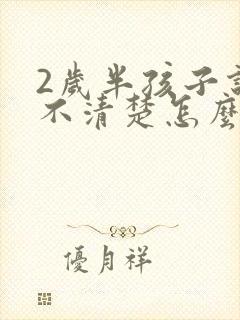 2歲半孩子
不清楚怎麼
優月祥